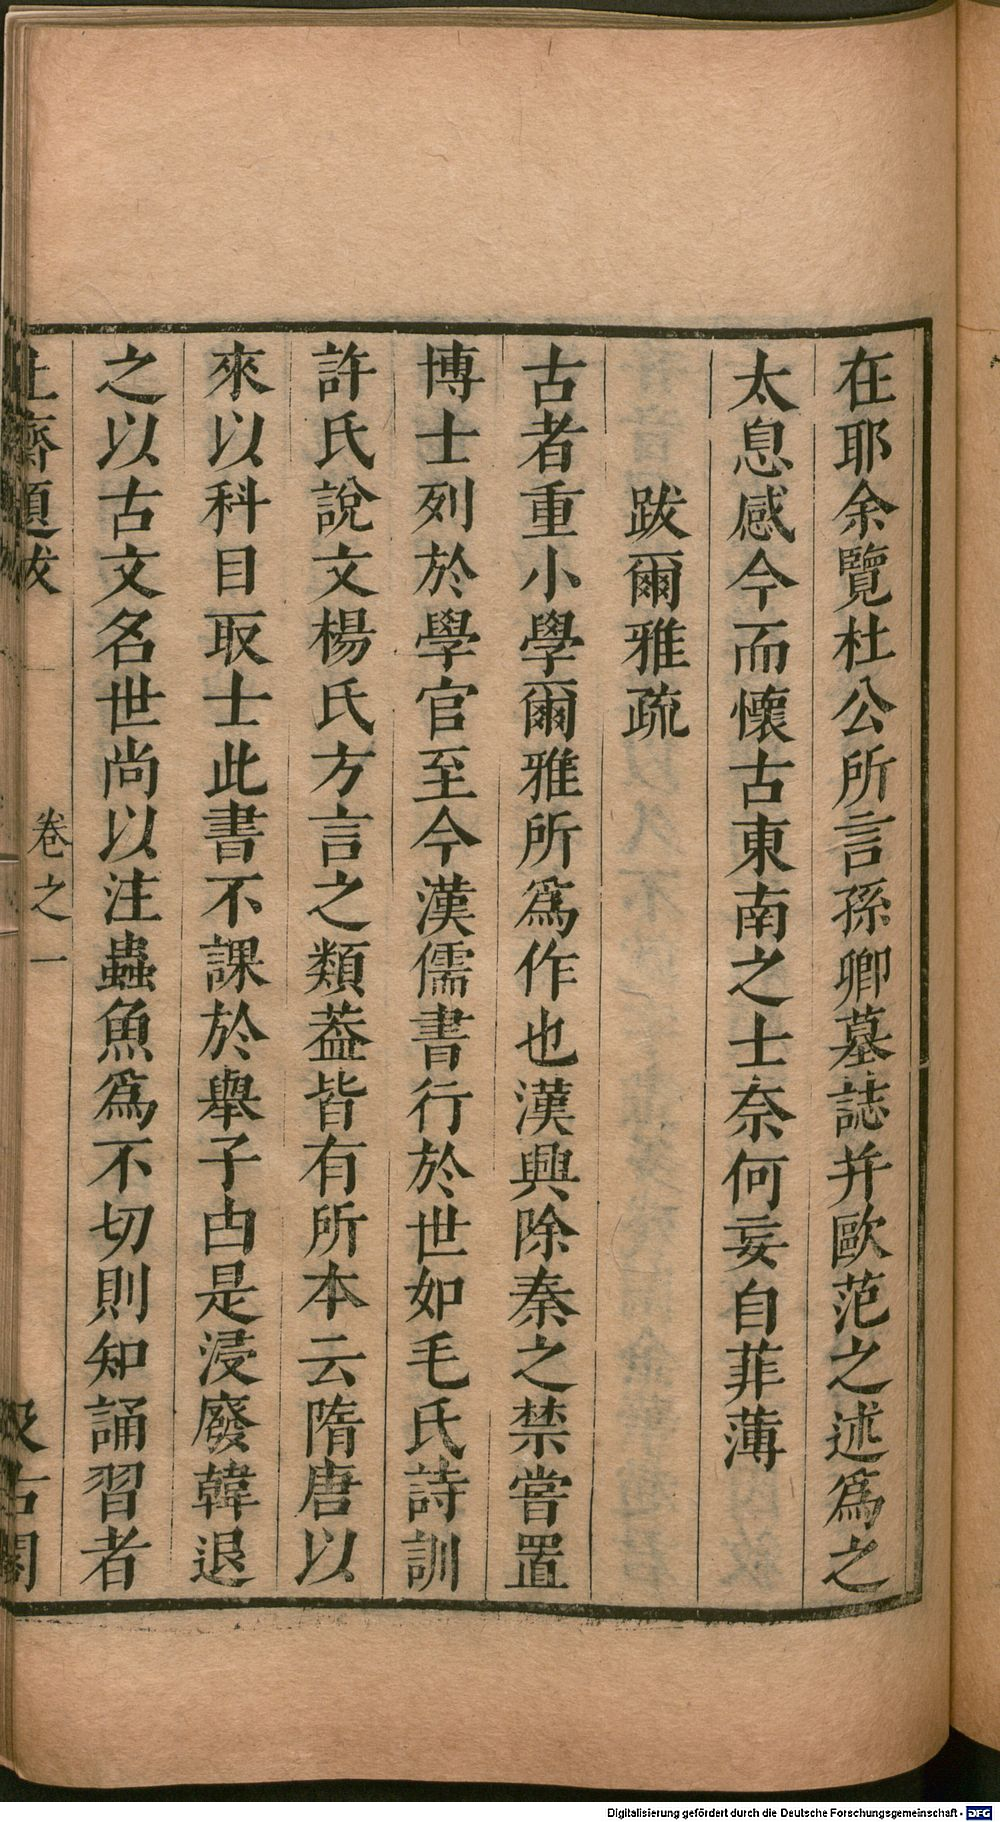 在耶余覽杜公所言孫卿墓誌并歐范之述爲之
太息感今而懷古東南之士奈何妄自菲薄
跋爾雅疏
古者重小學爾雅所爲作也漢興除秦之禁嘗置
博士列於學官至今漢儒書行於世如毛氏詩訓
許氏說文楊氏方言之類葢皆有所本云隋唐以
來以科目取士此書不課於舉子由是浸廢韓退
之以古文名世尚以注蟲魚爲不切則知誦習者
止齋題跋 卷之一 汲古閣
Digitalisierung gefördert durch die Deutsche Forschungsgemeinschaft - DFG